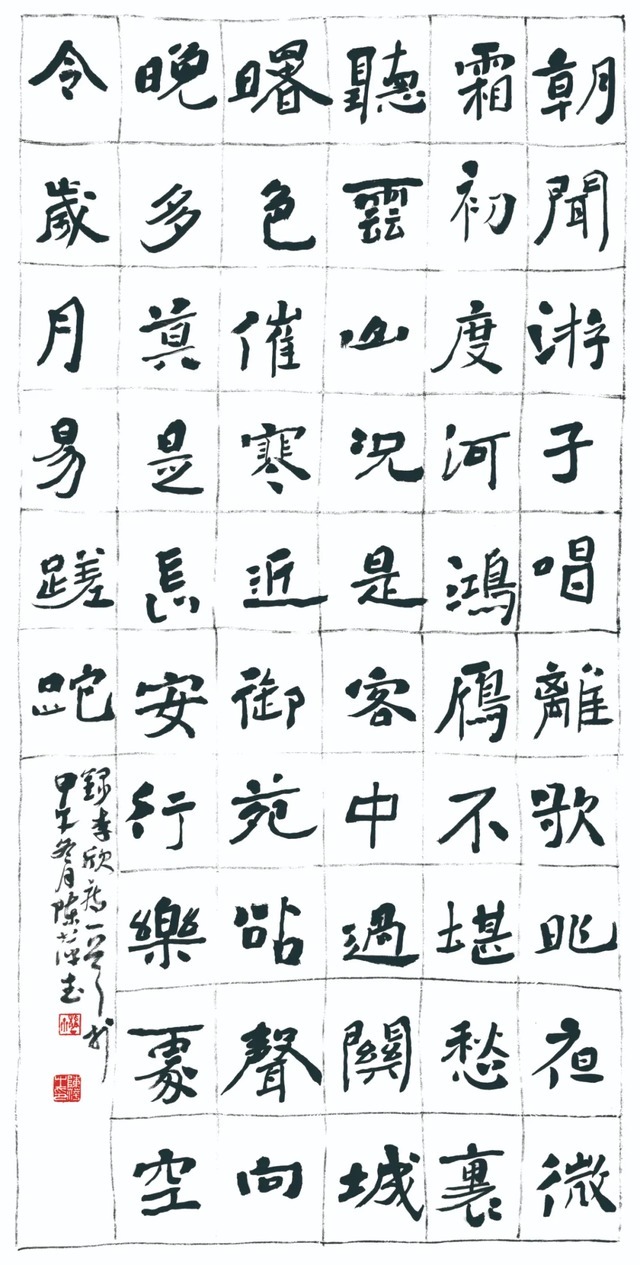 朝聞游子唱離歌昨夜微
霜初度河鴻鴈不堪愁裏
聽雲山況是客中過關城
曙色催寒近御苑砧聲向
晚多莫是長安行樂處空
令歲月易蹉跎
錄李欣
甲午冬月陳